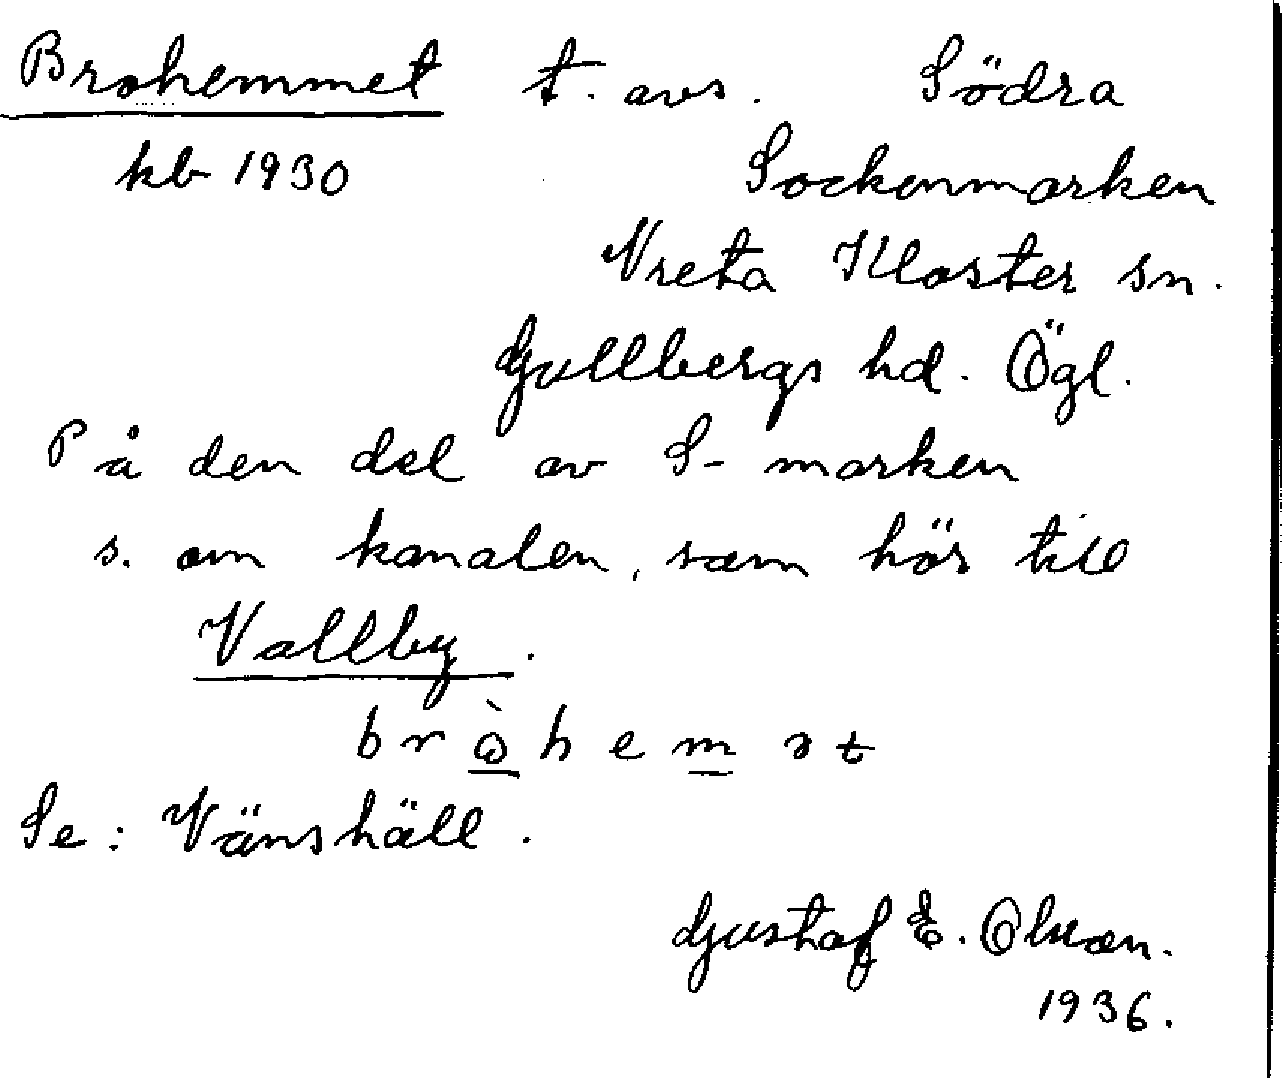 Brohemmet t. avs. Södra
kb 1930 Sockenmarken
Vreta Kloster sn.
Gullbergs hd. Ögl.
På den del av S-marken
s. om kanalen, som hör till
Vallby.
bròhemət
Se: Vänshäll.
Gustaf E. Olsson.
1936.